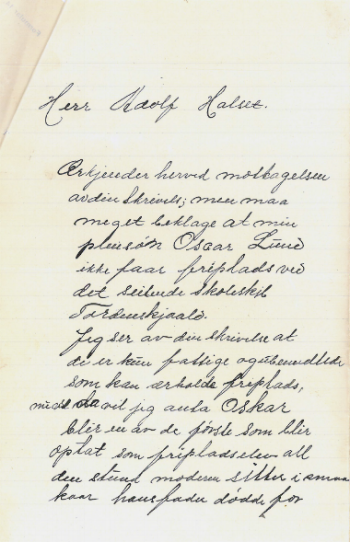 Herr Adolf Halset.
Erkjender herved motagelsen
av din skrivels; men maa
meget beklage at min
pleiesøn Oscar Lund
ikke faar friplads ved
det seilende skoleskib
Tordenskjold.
Jeg ser av din skrivelse at
de er kun fattige og ubemidlede
som kan erholde friplads,
da vil jeg anta Oskar
blir en av de første som blir
optat som fripladselev all
den stund moderen sitter i smaa
kaar hans fader døde for